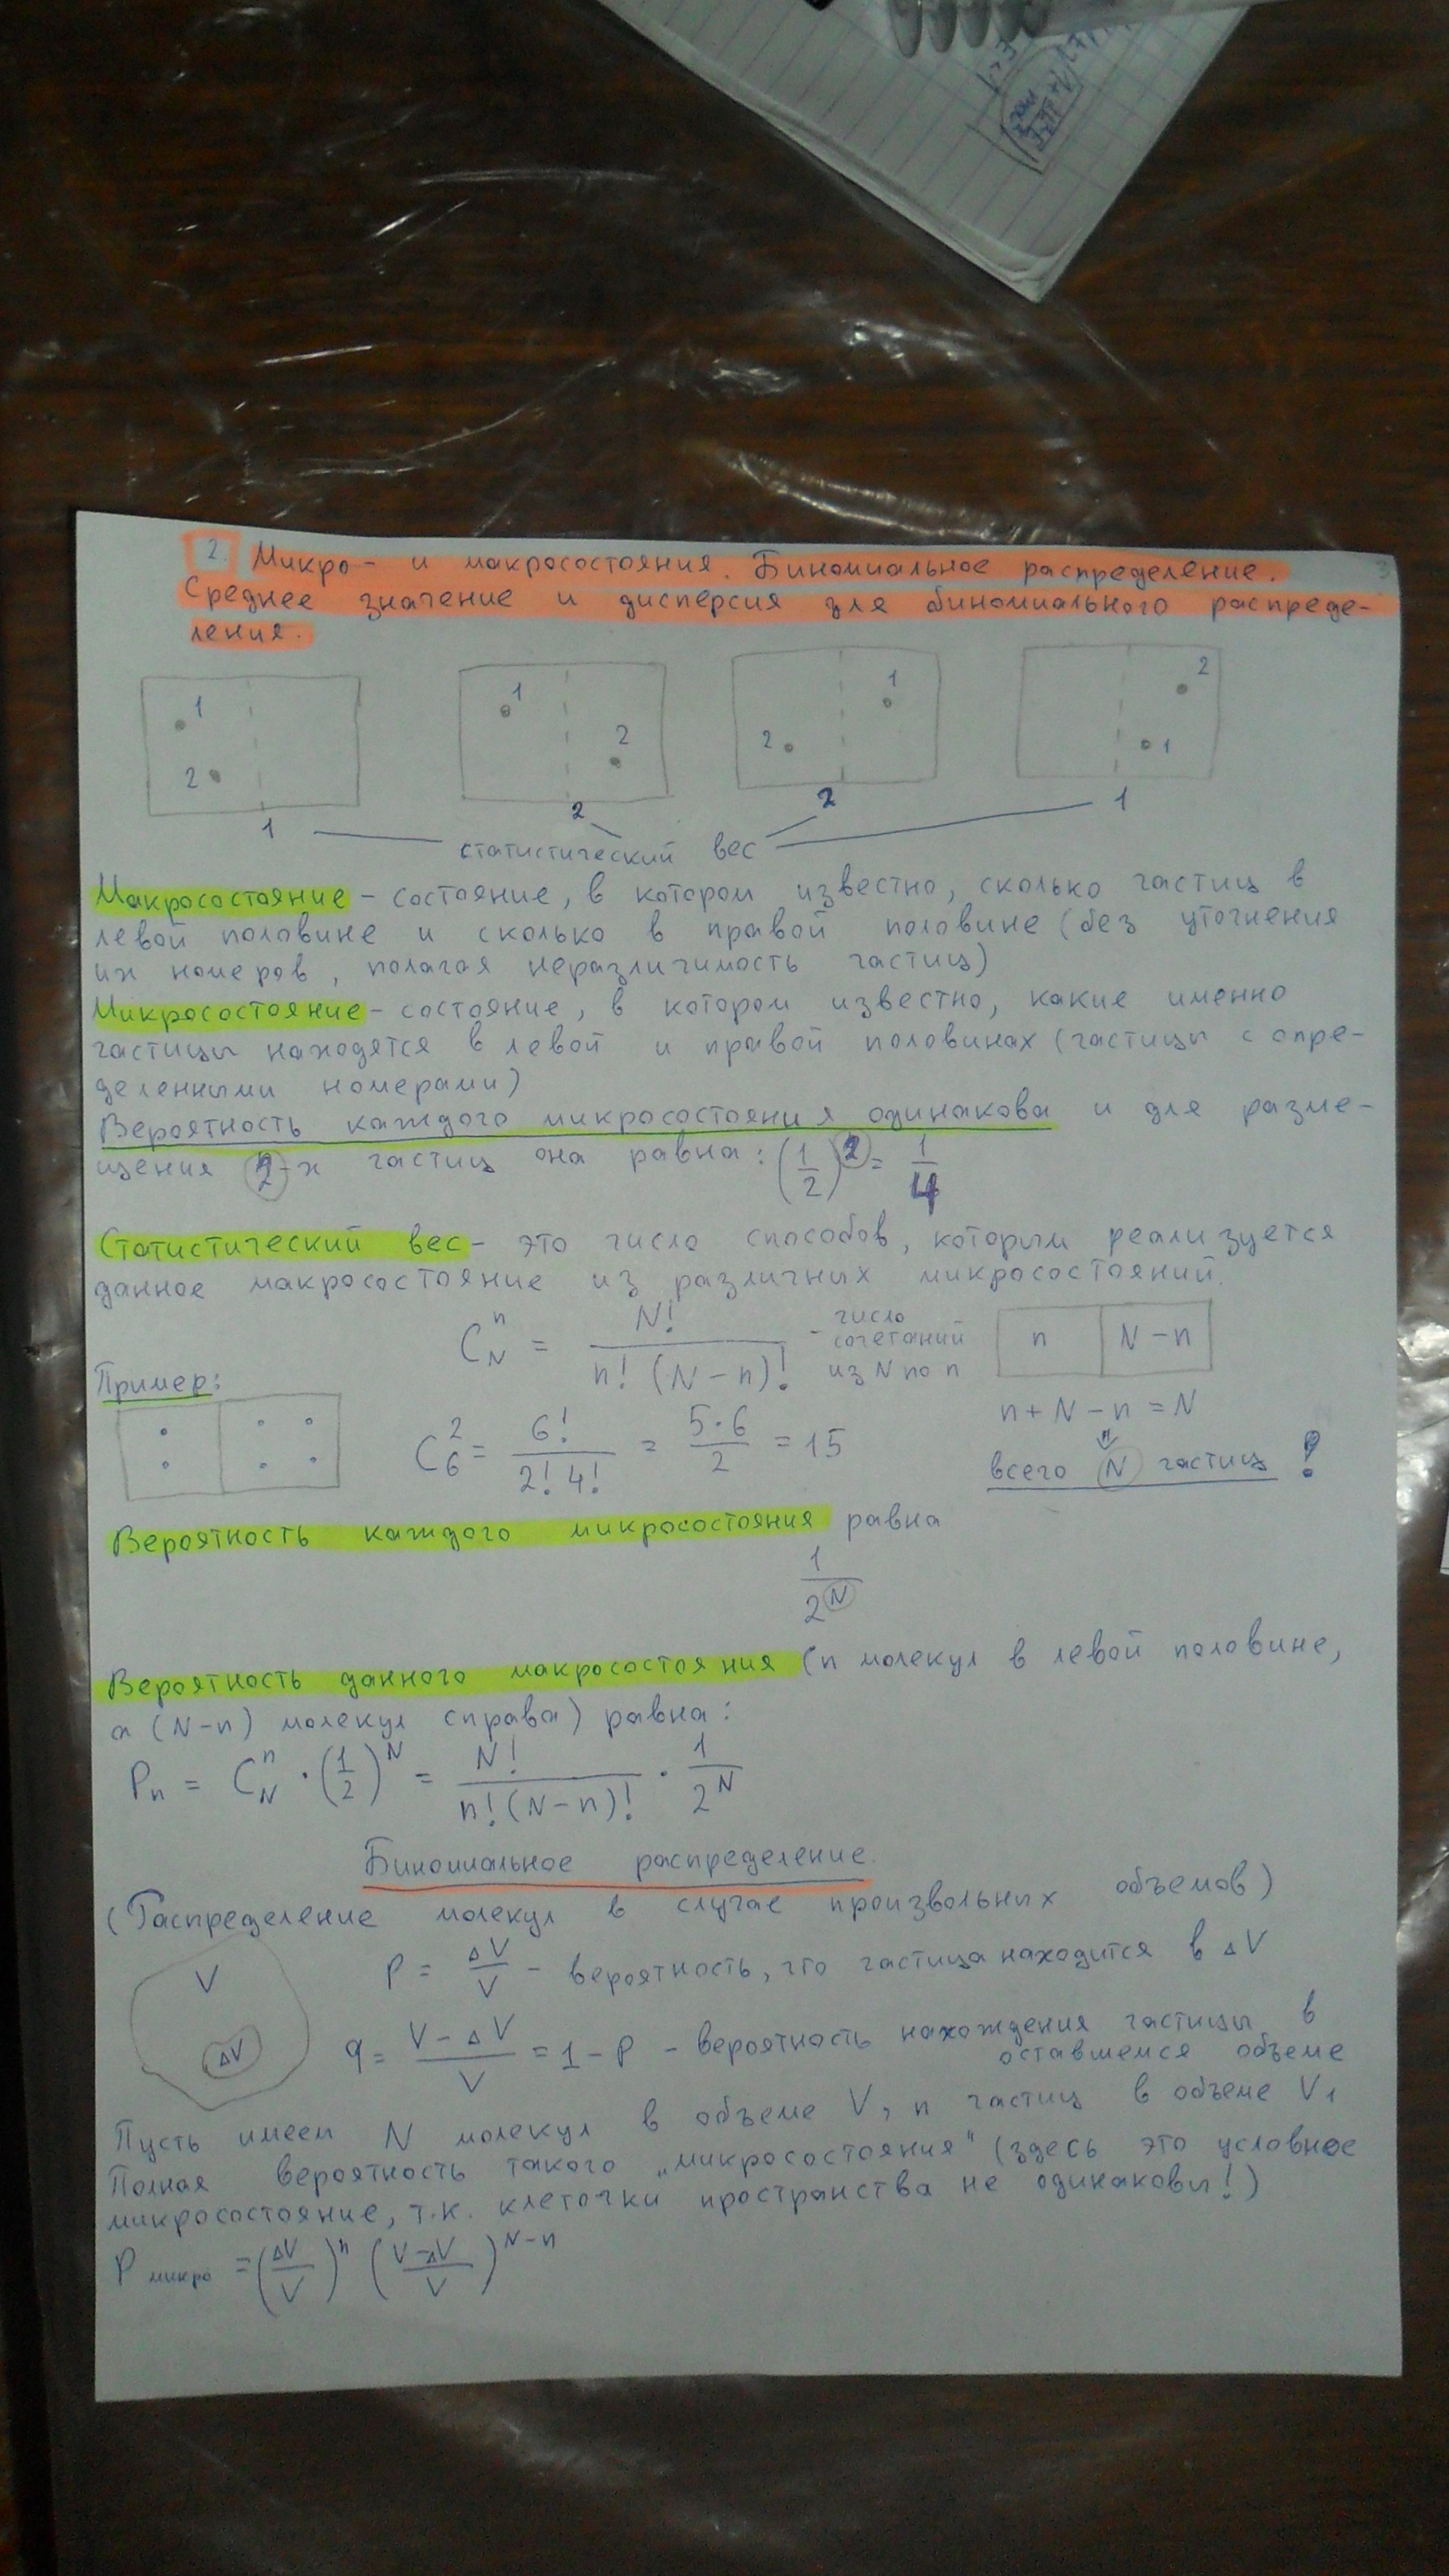 2. Микро- и макросостояния. Биномиальное распределение.
Среднее значение и дисперсия для биномиального распреде-
ления.
3
1
2
1
2
1
2
2
1
1
2
2
1
статистический вес
Макросостояние - состояние, в котором известно, сколько частиц в
левой половине и сколько в правой половине (без уточнения
их номеров, полагая неразличимость частиц)
Микросостояние - состояние, в котором известно, какие именно
частицы находятся в левой и правой половинах (частицы с опре-
деленными номерами)
Вероятность каждого микросостояния одинакова и для разме-
щения 2-х частиц она равна: (1/2)^2 = 1/4
Статистический вес - это число способов, которым реализуется
данное макросостояние из различных микросостояний.
C_N^n = N!/(n!(N-n)!) - число сочетаний из N по n
n N-n
n+N-n=N
всего N частиц !
Пример:
C_6^2 = 6!/(2!4!) = 5·6/2 = 15
Вероятность каждого микросостояния равна
1/2^N
Вероятность данного макросостояния (n молекул в левой половине,
а (N-n) молекул справа) равна:
P_n = C_N^n · (1/2)^N = N!/(n!(N-n)!) · 1/2^N
Биномиальное распределение.
(Распределение молекул в случае произвольных объемов)
V
ΔV
P = ΔV/V - вероятность, что частица находится в ΔV
q = (V-ΔV)/V = 1-P - вероятность нахождения частицы в
оставшемся объеме
Пусть имеем N молекул в объеме V, n частиц в объеме V1
Полная вероятность такого „микросостояния" (здесь это условное
микросостояние, т.к. клеточки пространства не одинаковы!)
P микро = (ΔV/V)^n ((V-ΔV)/V)^(N-n)